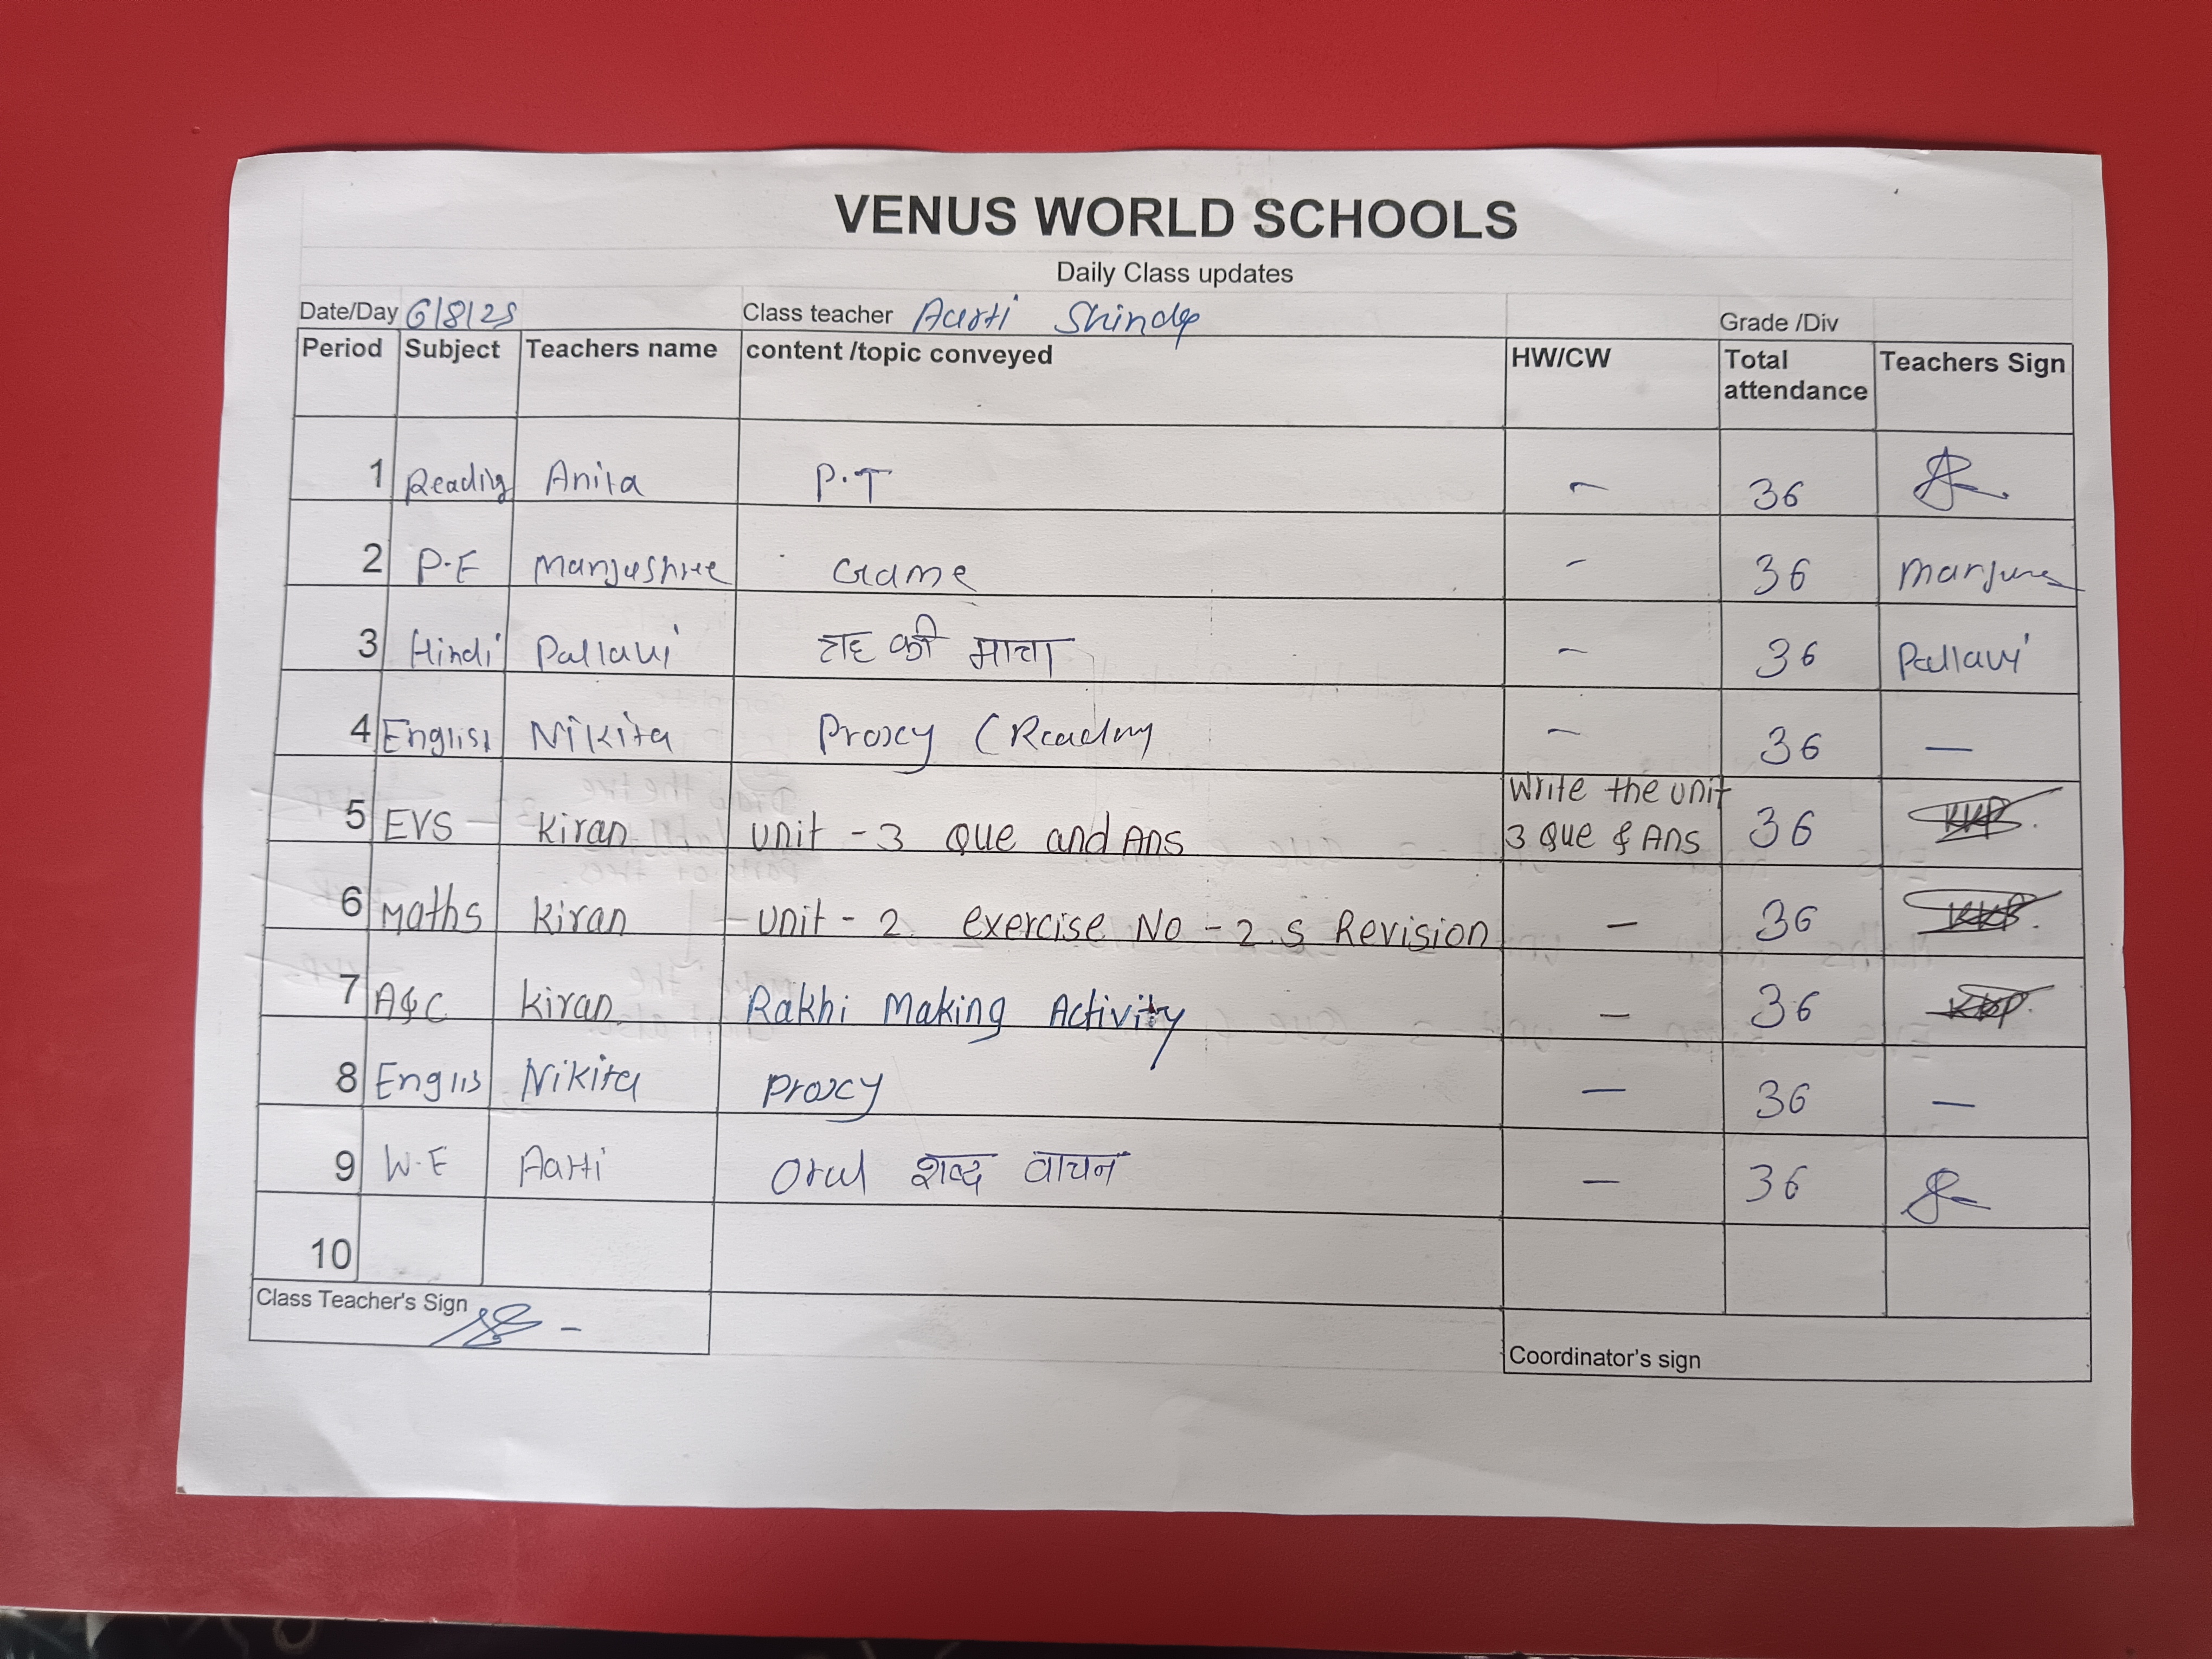 VENUS WORLD SCHOOLS
Daily Class updates
Date/Day 6/8/25 Class teacher Aarti Shinde Grade /Div
Period Subject Teachers name content /topic conveyed HW/CW Total attendance Teachers Sign
1 Reading Anita P.T - 36
2 P.E Manjushree Game - 36
3 Hindi Pallavi की मात्रा - 36 Pallavi
4 English Nikita Proxy (Reading - 36 -
5 EVS - Kiran unit - 3 Que and Ans Write the unit 3 Que & Ans 36
6 Maths Kiran - unit - 2 exercise No - 2.5 Revision - 36
7 A&C Kiran Rakhi Making Activity - 36
8 Englis Nikita Proxy - 36 -
9 W.E Aarti Oral शब्द वाचन - 36
10
Class Teacher's Sign
Coordinator's sign